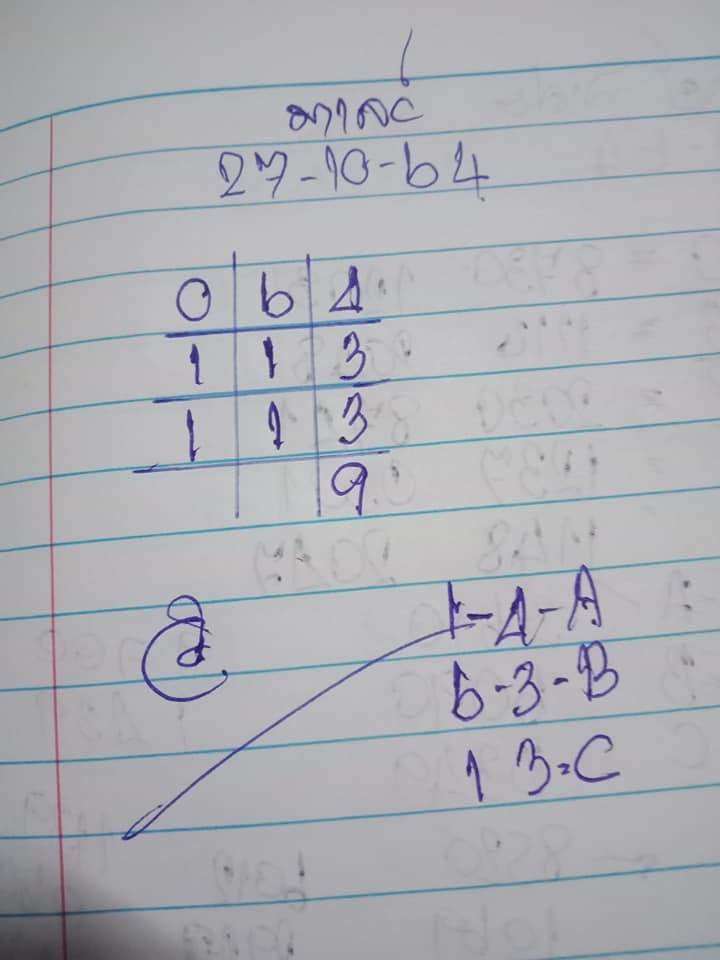 27-10-64
0 6 4
1 1 3
1 1 3
9
1-4-A
6-3-B
1 3=C